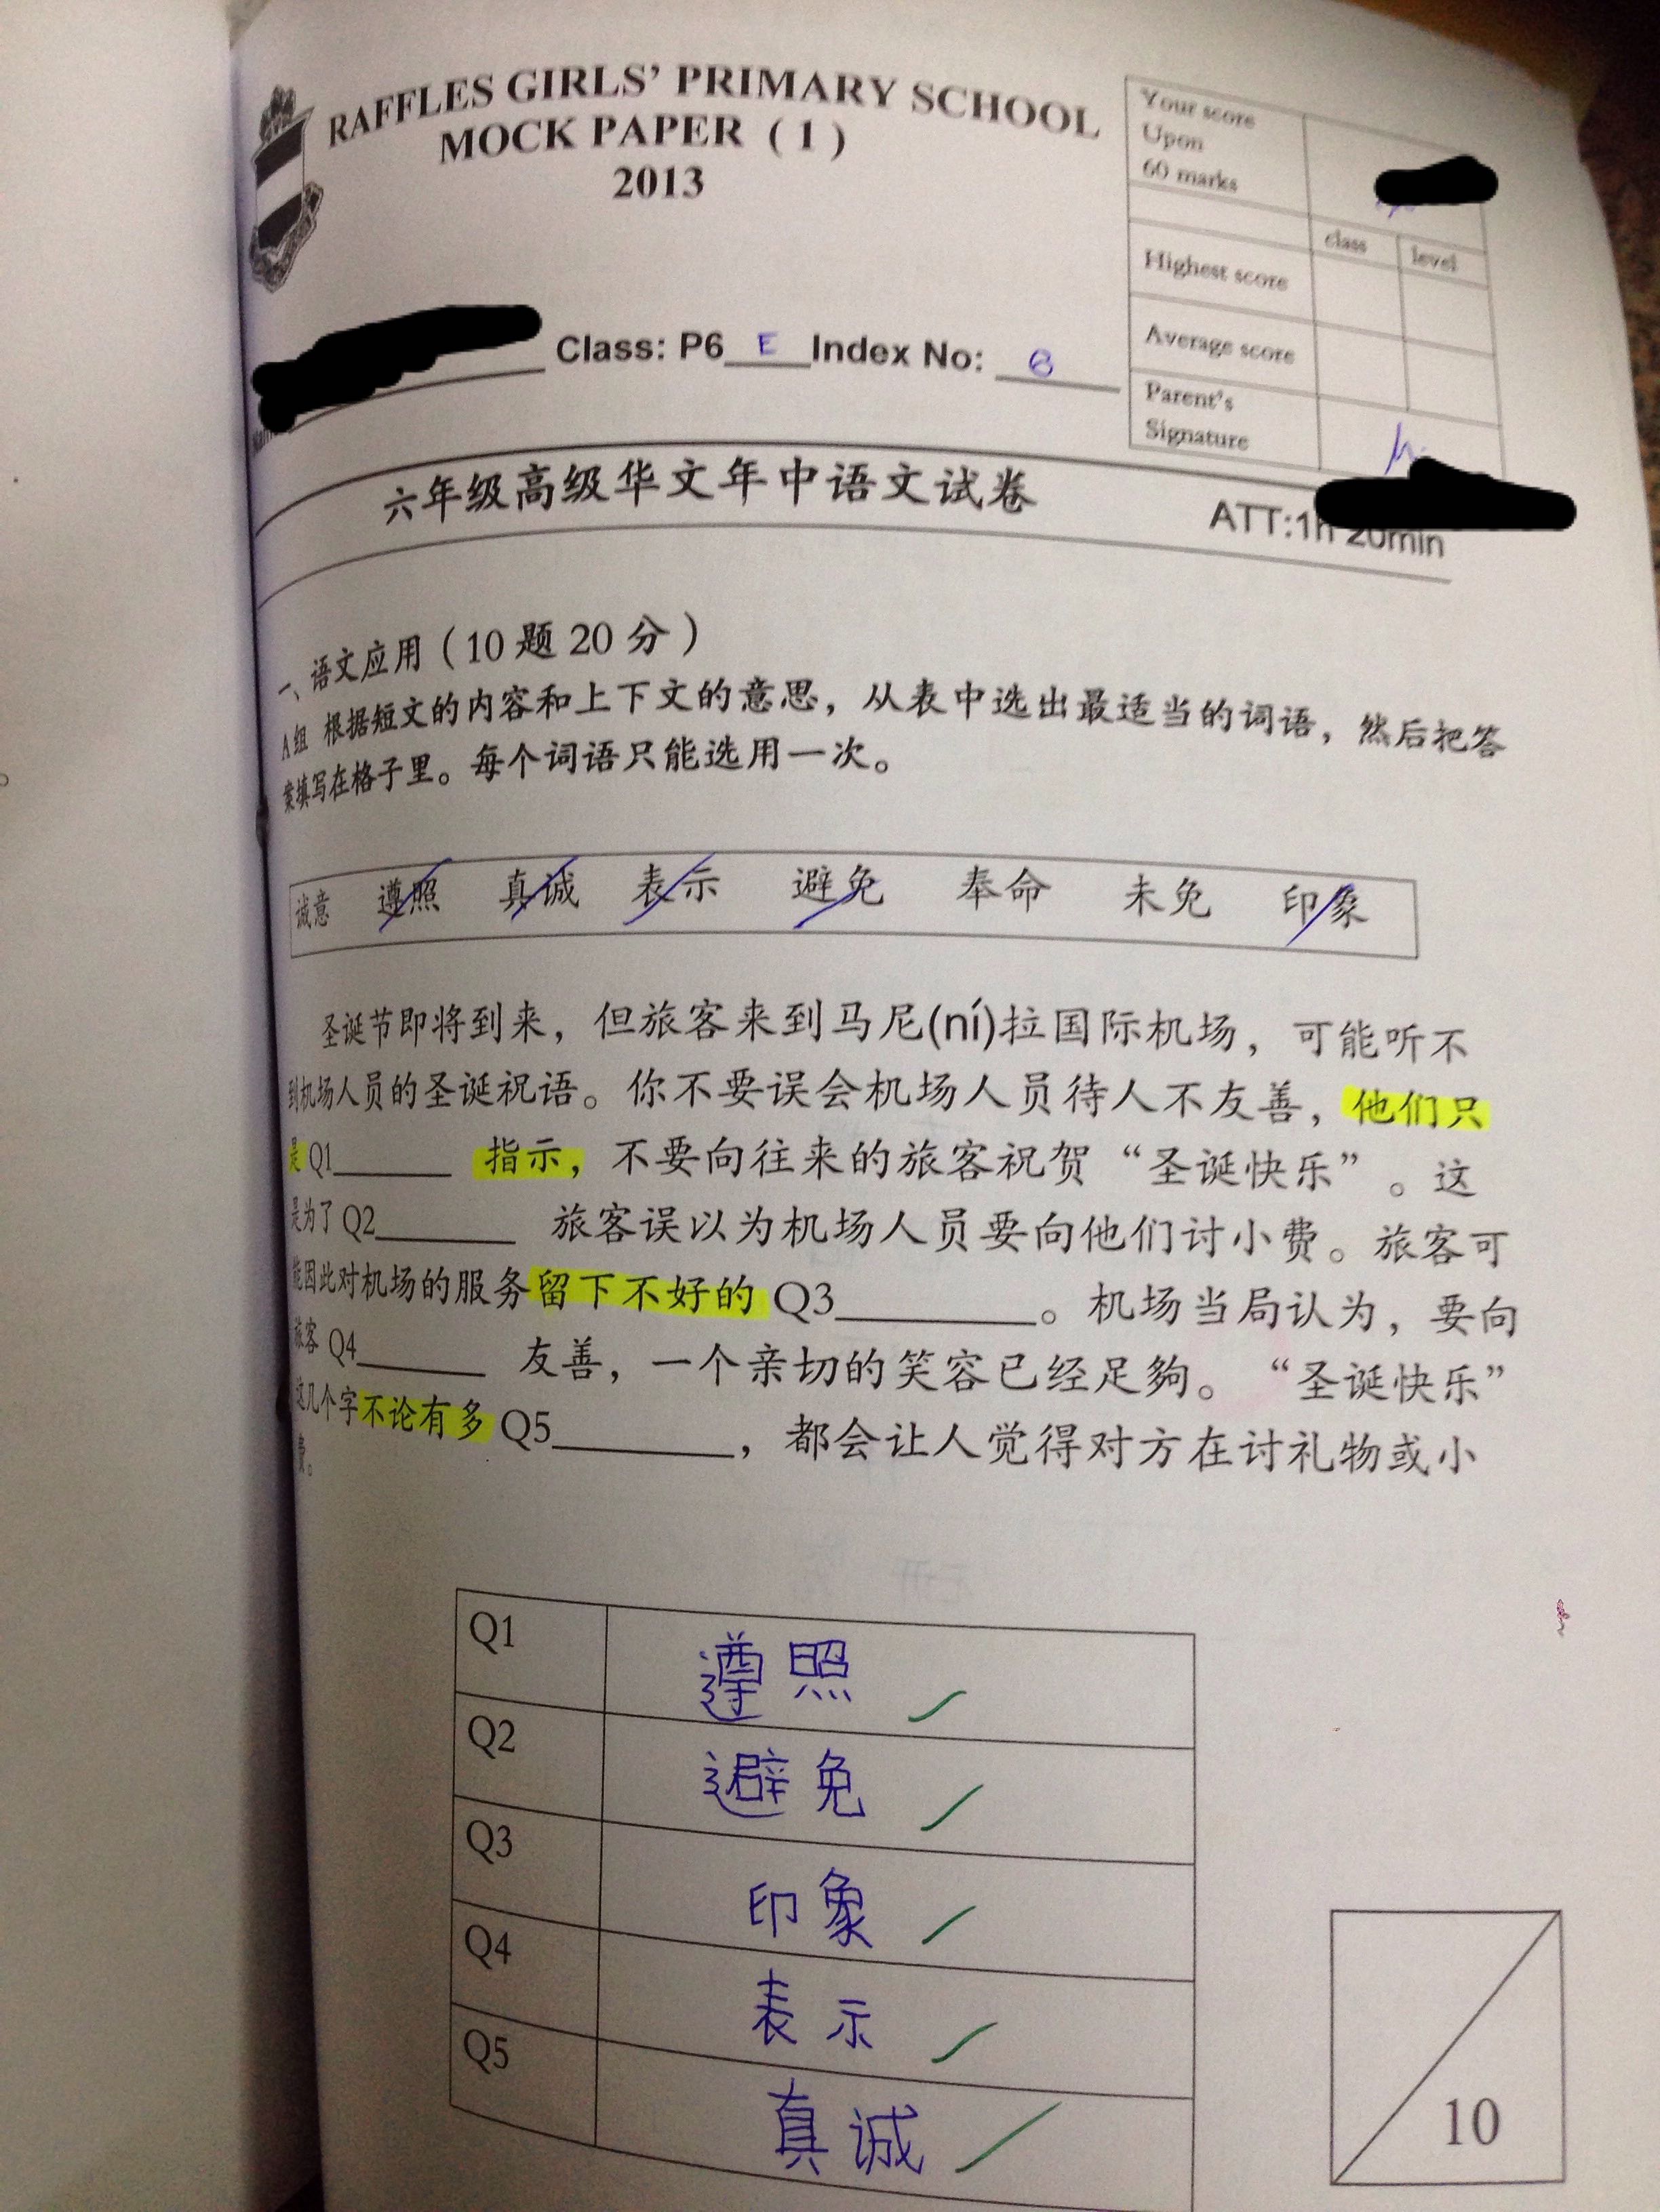 RAFFLES GIRLS' PRIMARY SCHOOL
MOCK PAPER ( 1 )
2013
Your score
Upon
60 marks
class level
Highest score
Average score
Parent's
Signature
Class: P6 E Index No: 8
六年级高级华文年中语文试卷
ATT:1h 20min
一、语文应用(10题20分)
A组 根据短文的内容和上下文的意思，从表中选出最适当的词语，然后把答
案填写在格子里。每个词语只能选用一次。
诚意 遵照 真诚 表示 避免 奉命 未免 印象
圣诞节即将到来，但旅客来到马尼(ní)拉国际机场，可能听不
到机场人员的圣诞祝语。你不要误会机场人员待人不友善，他们只
是 Q1________ 指示，不要向往来的旅客祝贺“圣诞快乐”。这
是为了 Q2________ 旅客误以为机场人员要向他们讨小费。旅客可
能因此对机场的服务留下不好的 Q3________。机场当局认为，要向
旅客 Q4________ 友善，一个亲切的笑容已经足夠。“圣诞快乐”
这几个字不论有多 Q5________，都会让人觉得对方在讨礼物或小
费。
Q1 遵照
Q2 避免
Q3 印象
Q4 表示
Q5 真诚
10